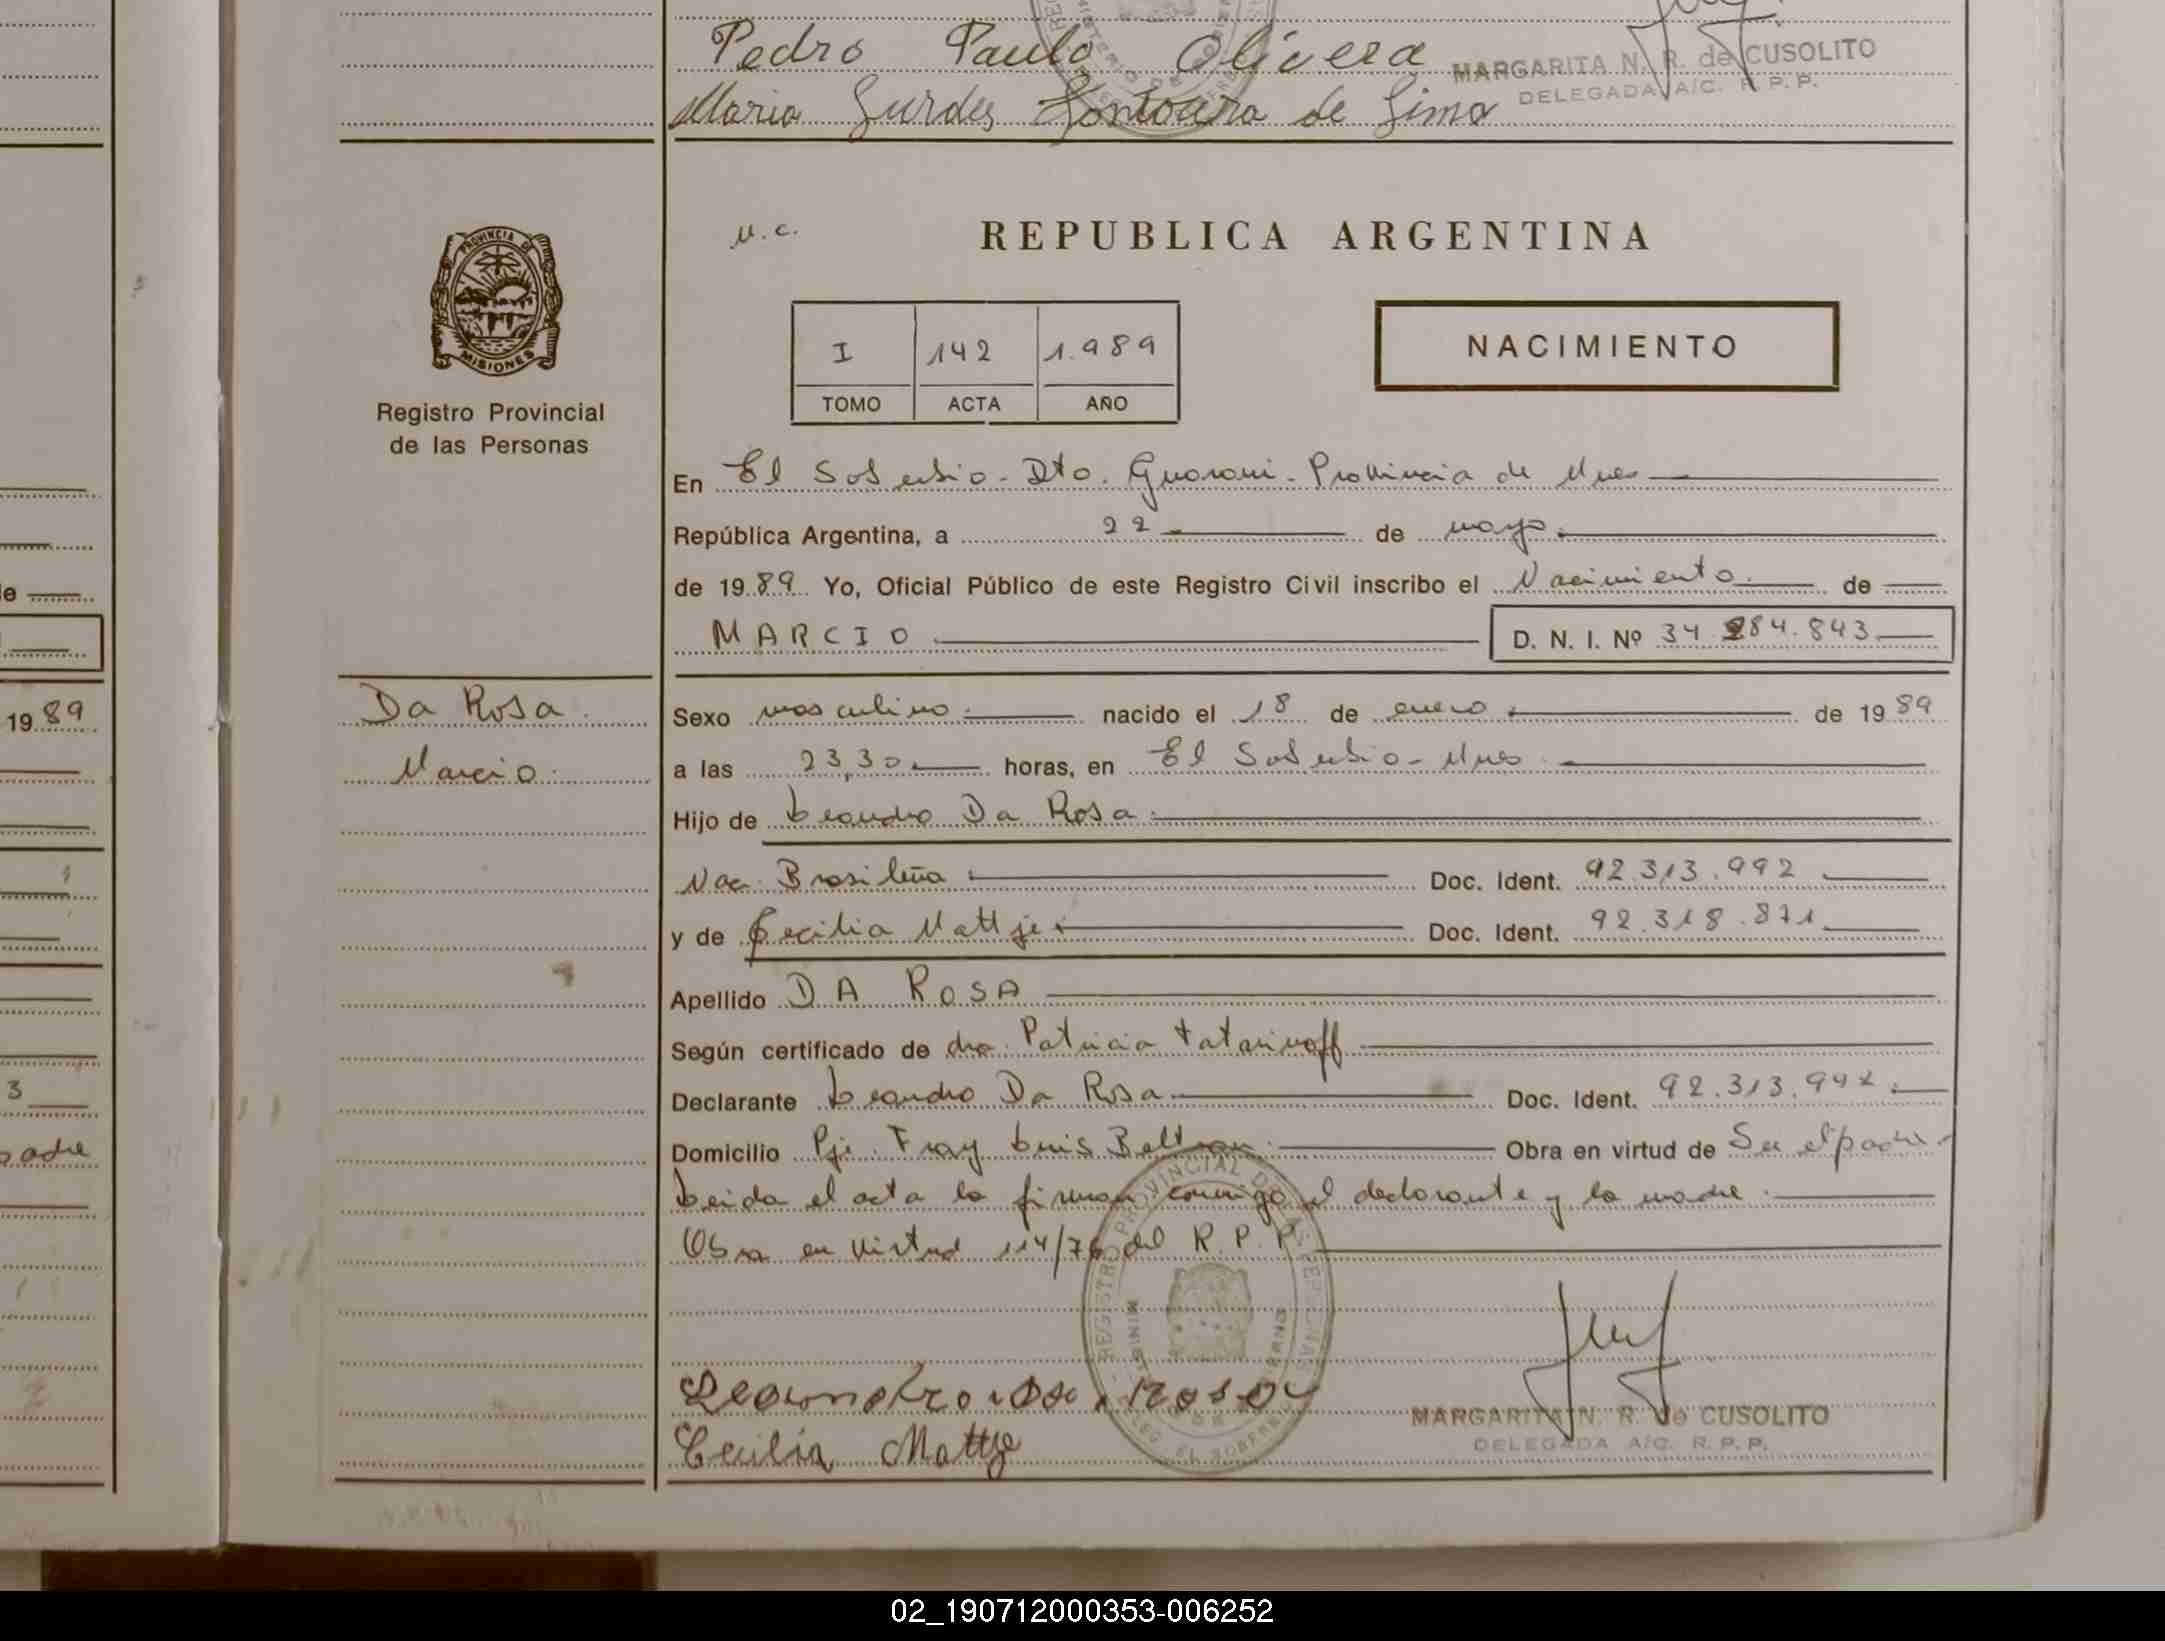 Pedro Paulo Olivera
MARGARITA N. R. de CUSOLITO
DELEGADA A/C. R. P. P.
Maria Lurdes Fontoura de Lima
PROVINCIA DE
MISIONES
Registro Provincial
de las Personas
M.C.
REPUBLICA ARGENTINA
I 142 1.989
TOMO ACTA AÑO
NACIMIENTO
En El Soberbio - Dto. Guarani - Provincia de Mnes
República Argentina, a 22 de mayo.
de 1989 Yo, Oficial Público de este Registro Civil inscribo el Nacimiento de
MARCIO D. N. I. Nº 34. 284.843
Da Rosa
Marcio
Sexo masculino nacido el 18 de enero de 1989
a las 23,30 horas, en El Soberbio - Mnes
Hijo de Leandro Da Rosa
Nac. Brasileña Doc. Ident. 92.313.992
y de Cecilia Mattje Doc. Ident. 92.318.871
Apellido DA ROSA
Según certificado de dra. Patricia Tatarinoff
Declarante Leandro Da Rosa Doc. Ident. 92.313.992
Domicilio Pje. Fray Luis Beltran Obra en virtud de Ser el padre
Leida el acta la firman conmigo el declarante y la madre
Obra en virtud 114/76 del R. P. P.
REGISTRO PROVINCIAL DE LAS PERSONAS
Leandro Da Rosa
Cecilia Mattje
MARGARITA N. R. de CUSOLITO
DELEGADA A/C. R. P. P.
1989
3
padre
02_190712000353-006252